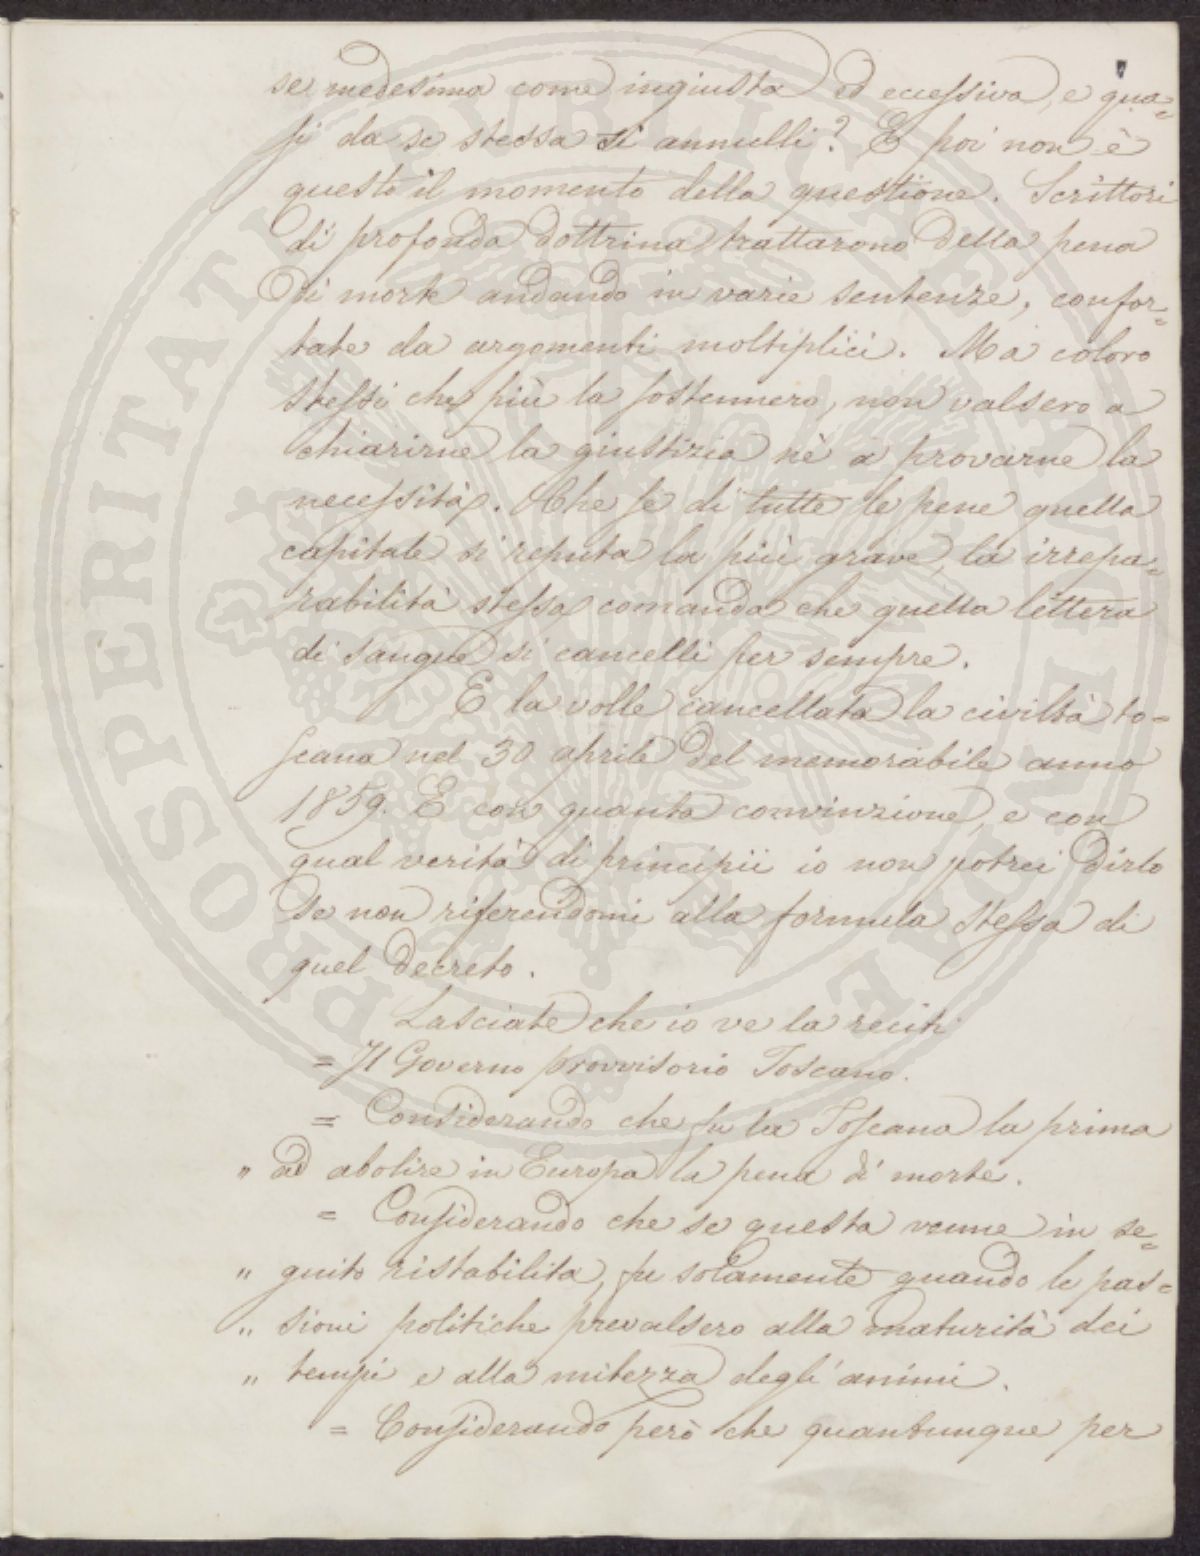 se medesima come ingiusta ed eccessiva, e qua=
si da se stessa si annulli? E poi non è
questo il momento della questione. Scrittori
di profonda dottrina trattarono della pena
di morte andando in varie sentenze, confor=
tate da argomenti moltiplici. Ma coloro
stessi che più la sostennero, non valsero a
chiarirne la giustizia nè a provarne la
necessità. Che se di tutte le pene quella
capitale si reputa la più grave, la irrepa=
rabilità stessa comanda che quella lettera
di sangue si cancelli per sempre.
E la volle cancellata la civiltà to=
scana nel 30 aprile del memorabile anno
1859. E con quanta convinzione, e con
qual verità di principii io non potrei dirlo
se non riferendomi alla formula stessa di
quel decreto.
Lasciate che io ve la reciti
= Il Governo provvisorio Toscano.
= Considerando che fu la Toscana la prima
" ad abolire in Europa la pena di morte.
= Considerando che se questa venne in se=
" guito ristabilita, fu solamente quando le pas=
" sioni politiche prevalsero alla maturità dei
" tempi e alla mitezza degli animi.
= Considerando però che quantunque per
PROSPERITATI PUBLICAE AUGENDAE